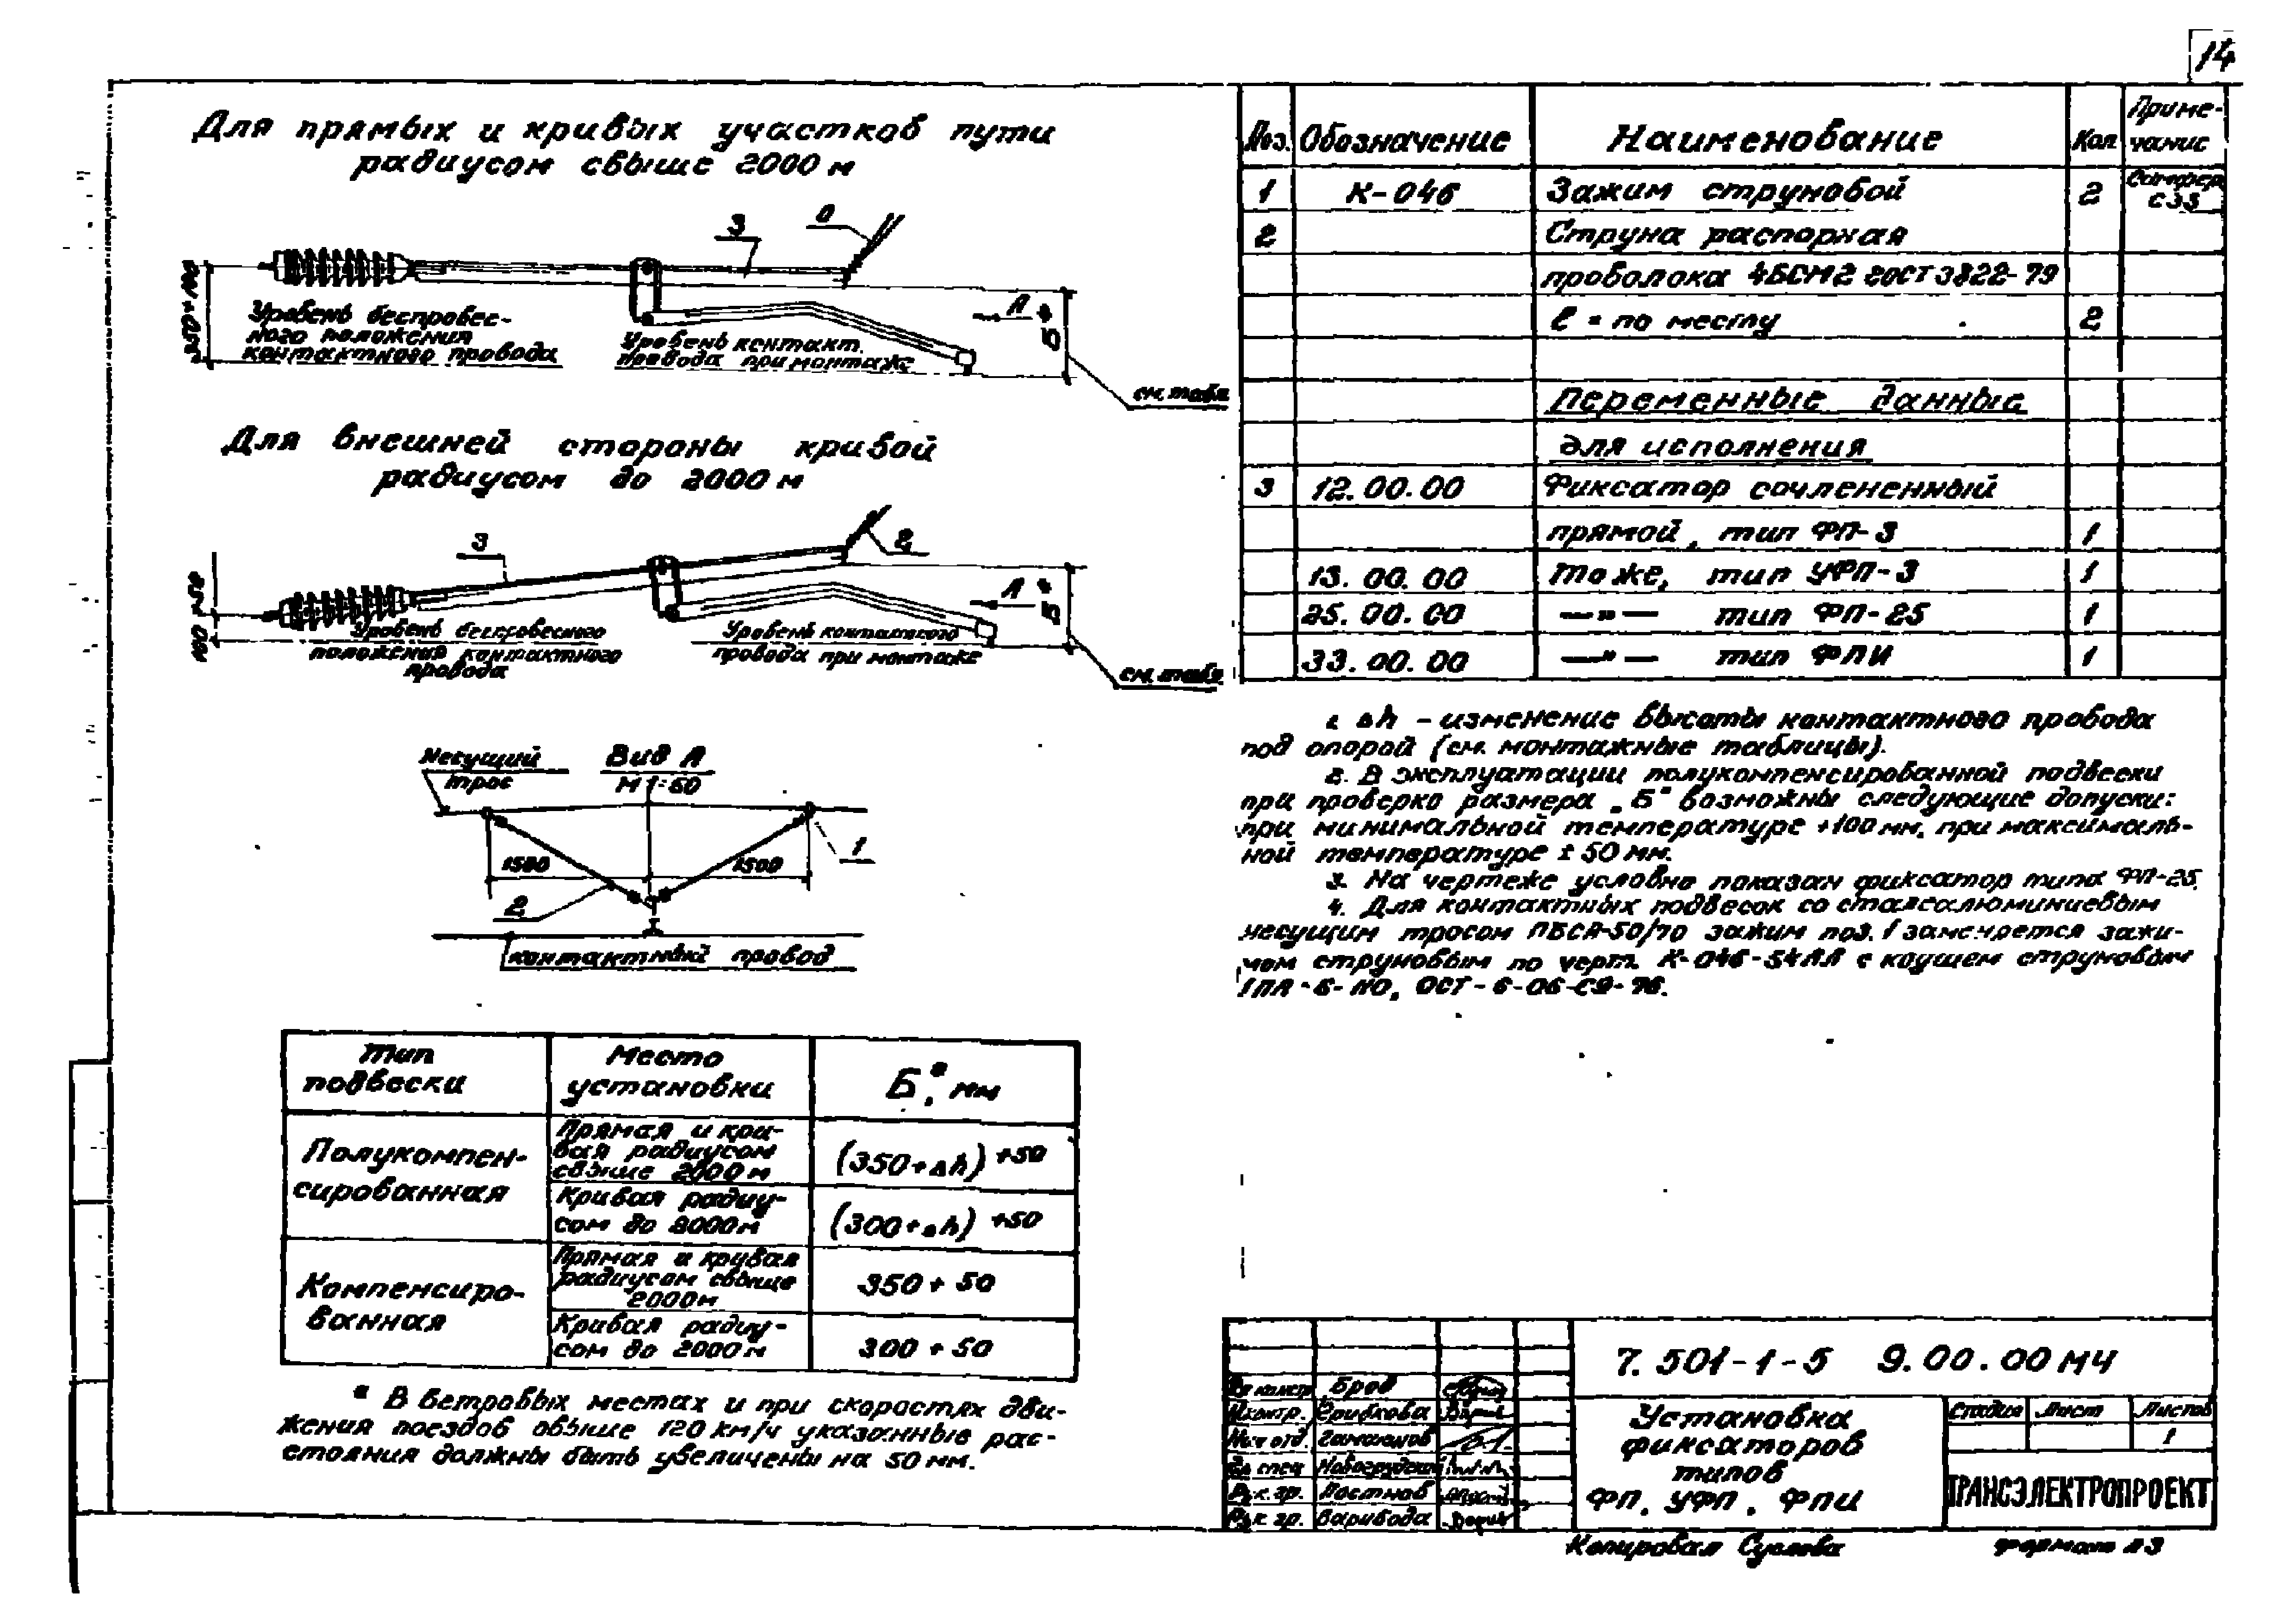 14
Для прямых и кривых участков пути
радиусом свыше 2000 м
3
Уровень беспровес-
ного положения
контактного провода
Уровень контакт.
провода при монтаже
А
Б*
см. табл
Для внешней стороны кривой
радиусом до 2000 м
3
2
Уровень беспровесного
положения контактного
провода
Уровень контактного
провода при монтаже
А
Б*
см. табл.
Несущий
трос
Вид А
М 1:50
1500
1500
1
2
контактный провод
Тип
подвески
Место
установки
Б*, мм
Полукомпен-
сированная
Прямая и кри-
вая радиусом
свыше 2000 м
(350+Δh) +50
Кривая радиу-
сом до 2000м
(300+Δh) +50
Компенсиро-
ванная
Прямая и кривая
радиусом свыше
2000м
350 + 50
Кривая радиу-
сом до 2000 м
300 + 50
* В ветровых местах и при скоростях дви-
жения поездов свыше 120 км/ч указанные рас-
стояния должны быть увеличены на 50 мм.
Поз. Обозначение Наименование Кол Приме-
чание
1 К-046 Зажим струновой 2
2 Струна распорная
проволока 4БСМ2 ГОСТ 3822-79
ℓ = по месту 2
Переменные данные
для исполнения
3 12.00.00 Фиксатор сочлененный
прямой, тип ФП-3 1
13.00.00 То же, тип УФП-3 1
25.00.00 —"— тип ФП-25 1
33.00.00 —"— тип ФПИ 1
1. Δh - изменение высоты контактного провода
под опорой (см. монтажные таблицы).
2. В эксплуатации полукомпенсированной подвески
при проверке размера „Б" возможны следующие допуски:
при минимальной температуре +100 мм, при максималь-
ной температуре ± 50 мм.
3. На чертеже условно показан фиксатор типа ФП-25.
4. Для контактных подвесок со сталеалюминиевым
несущим тросом ПБСА-50/70 зажим поз. 1 заменяется зажи-
мом струновым по черт. К-046-54АА с коушем струновым
7.501-1-5 9.00.00 МЧ
Установка
фиксаторов
типов
ФП, УФП, ФПИ
Стадия Лист Листов
1
ТРАНСЭЛЕКТРОПРОЕКТ
Н.контр.
Нач отд.
Гл спец
Рук. гр. Постнов
Рук гр. Варивода
Копировал Суслова
формат А3